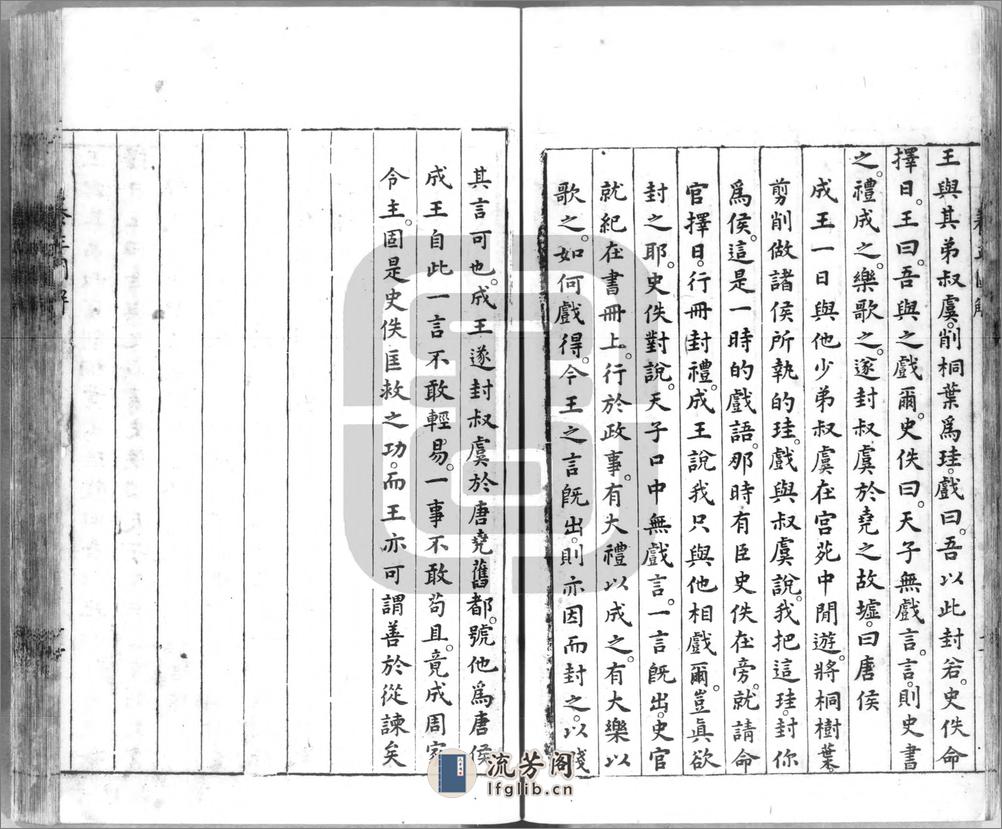 王與其弟叔虞。削桐葉爲珪。戲曰。吾以此封若。史佚命
擇日。王曰。吾與之戲爾。史佚曰。天子無戲言。言則史書
之。禮成之。樂歌之。遂封叔虞於堯之故墟。曰唐侯
成王一日與他少弟叔虞在宮苑中閒遊。將桐樹葉
剪削做諸侯所執的珪。戲與叔虞說。我把這珪。封你
爲侯。這是一時的戲語。那時有臣史佚在旁。就請命
官擇日。行冊封禮。成王說我只與他相戲爾。豈眞欲
封之耶。史佚對說。天子口中無戲言。一言旣出。史官
就紀在書冊上。行於政事。有大禮以成之。有大樂以
歌之。如何戲得。今王之言旣出。則亦因而封之。以踐
其言可也。成王遂封叔虞於唐堯舊都。號他爲唐侯
成王自此一言不敢輕易。一事不敢苟且。竟成周家
令主。固是史佚匡救之功。而王亦可謂善於從諫矣
流芳阁
lfglib.cn